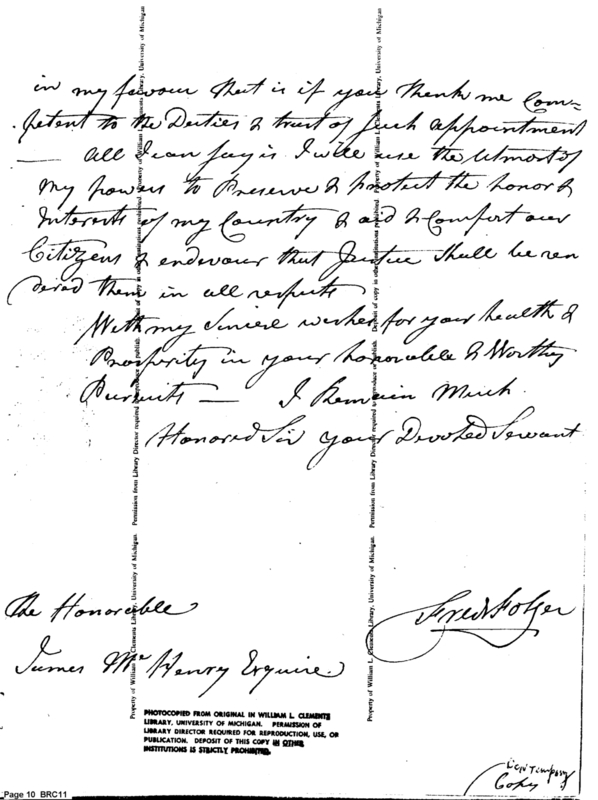 in my favour that is if you think me Com=
petent to the Duties & trust of such appointment
— all I can say is I will use the Utmost of
my powers to Preserve & protect the honor &
Interests of my Country & aid & Comfort our
Citizens & endevour that Justice shall be ren
dered them in all respects
With my Sincere wishes for your health &
Prosperity in your honorable & Worthy
Pursuits — I Remain Much
Honored Sir your Devoted Servant
Fredk Folger
The Honorable
James Mc Henry Esquire
Property of William L. Clements Library, University of Michigan. Permission from Library Director required to reproduce or publish. Deposit of copy in other institutions prohibited.
Property of William L. Clements Library, University of Michigan. Permission from Library Director required to reproduce or publish. Deposit of copy in other institutions prohibited.
PHOTOCOPIED FROM ORIGINAL IN WILLIAM L. CLEMENTS
LIBRARY, UNIVERSITY OF MICHIGAN. PERMISSION OF
LIBRARY DIRECTOR REQUIRED FOR REPRODUCTION, USE, OR
PUBLICATION. DEPOSIT OF THIS COPY IN OTHER
INSTITUTIONS IS STRICTLY PROHIBITED.
Contemporary
Copy
Page 10 BRC11